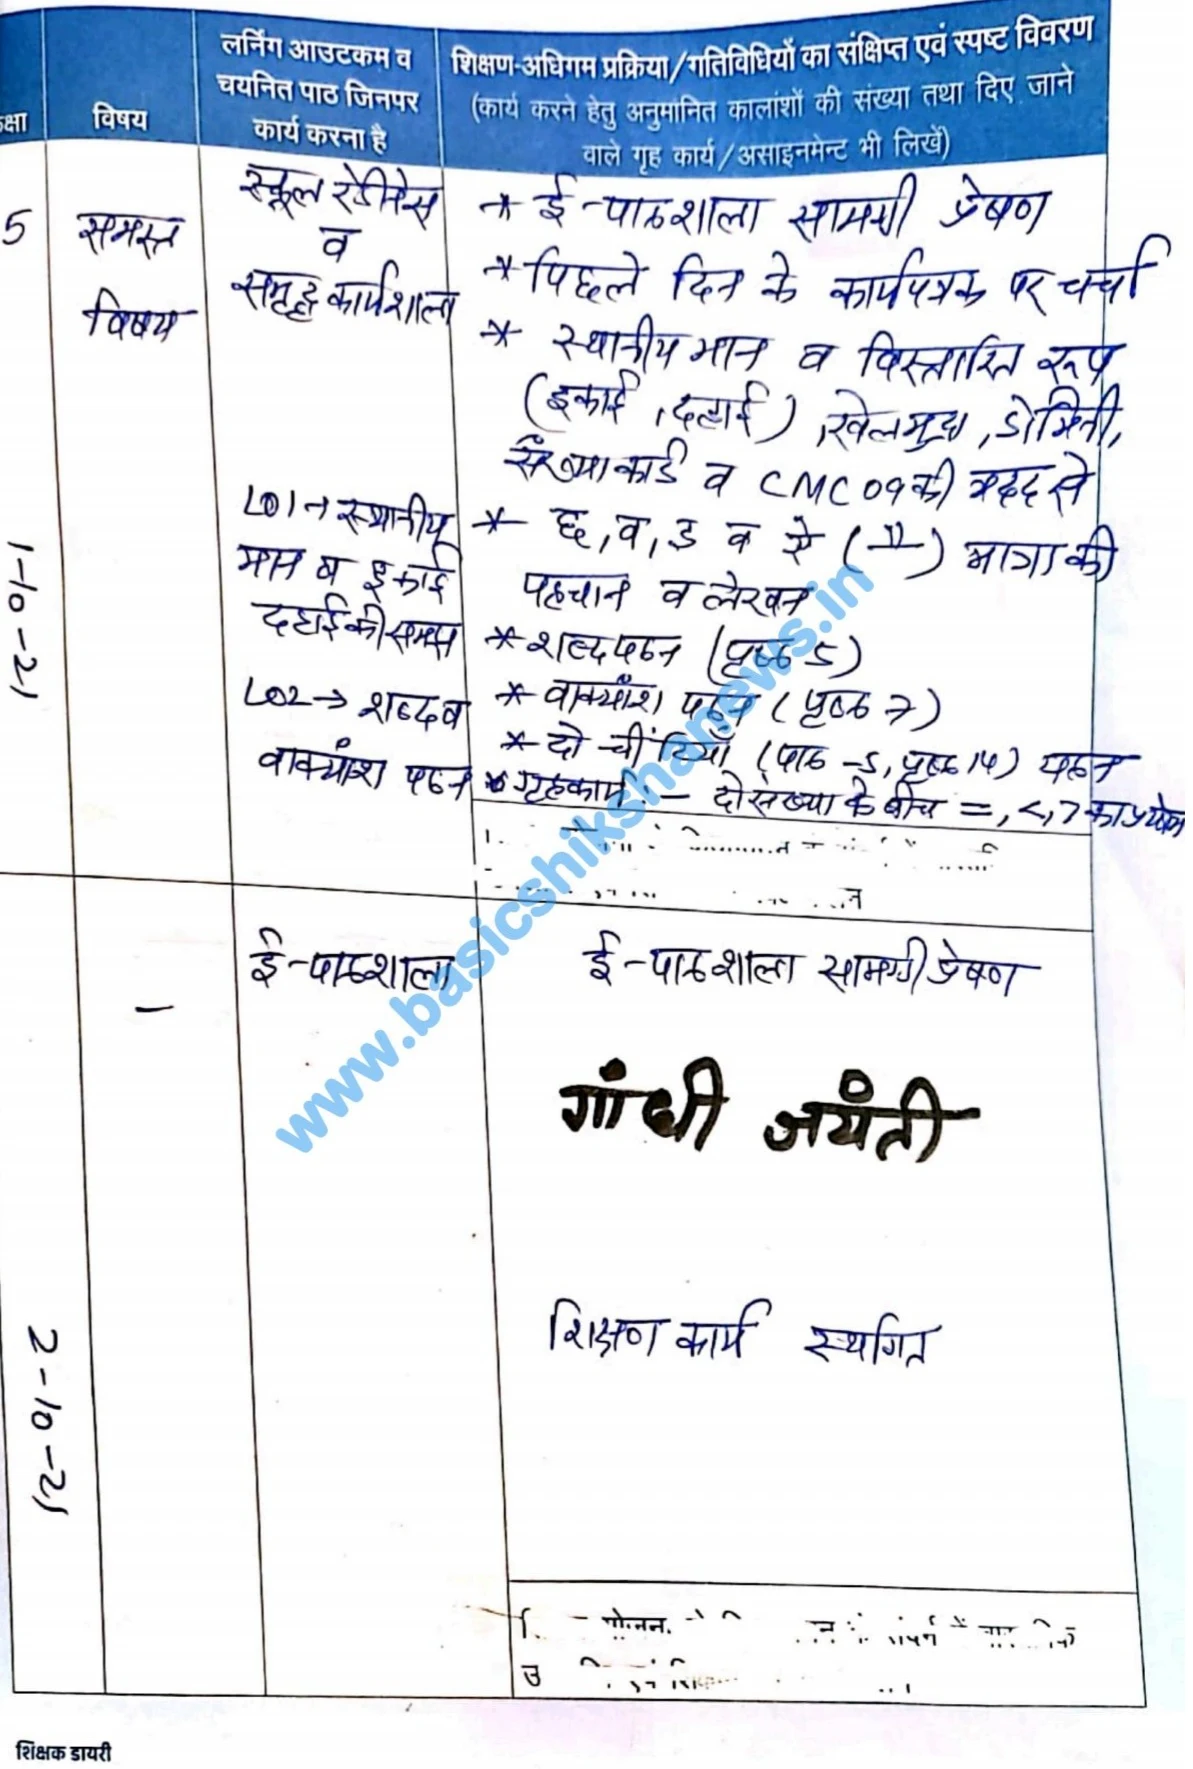 लर्निंग आउटकम व
चयनित पाठ जिनपर
कार्य करना है
शिक्षण-अधिगम प्रक्रिया/गतिविधियों का संक्षिप्त एवं स्पष्ट विवरण
(कार्य करने हेतु अनुमानित कालांशों की संख्या तथा दिए जाने
वाले गृह कार्य/असाइनमेंट भी लिखें)
क्षा
विषय
5
समस्त
विषय
1-10-21
स्कूल रेडीनेस
व
समृद्ध कार्यशाला
LO1→ स्थानीय
मान व इकाई
दहाई की समझ
LO2→ शब्द व
वाक्यांश पठन
* ई-पाठशाला सामग्री प्रेषण
* पिछले दिन के कार्यपत्रक पर चर्चा
* स्थानीय मान व विस्तारित रूप
(इकाई, दहाई), खेलमुद्रा, डोमिनो,
संख्याकार्ड व CMC 09 की मदद से
* छ, व, ड व ऐ (ै) मात्रा की
पहचान व लेखन
* शब्द पठन (पृष्ठ 5)
* वाक्यांश पठन (पृष्ठ 7)
* दो चींटियाँ (पाठ-5, पृष्ठ 14) पठन
* गृहकार्य :- दो संख्या के बीच =, <, > का प्रयोग
-
2-10-21
ई-पाठशाला
ई-पाठशाला सामग्री प्रेषण
गांधी जयंती
शिक्षण कार्य स्थगित
www.basicshikshanews.in
शिक्षक डायरी